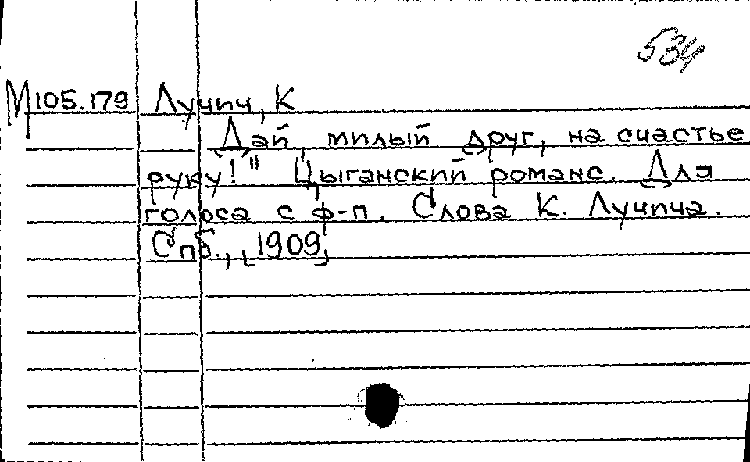 534
М105.179 Лучич, К
Дай, милый друг, на счастье
руку!" Цыганский романс. Для
голоса с ф-п. Слова К. Лучича.
Спб., [1909]